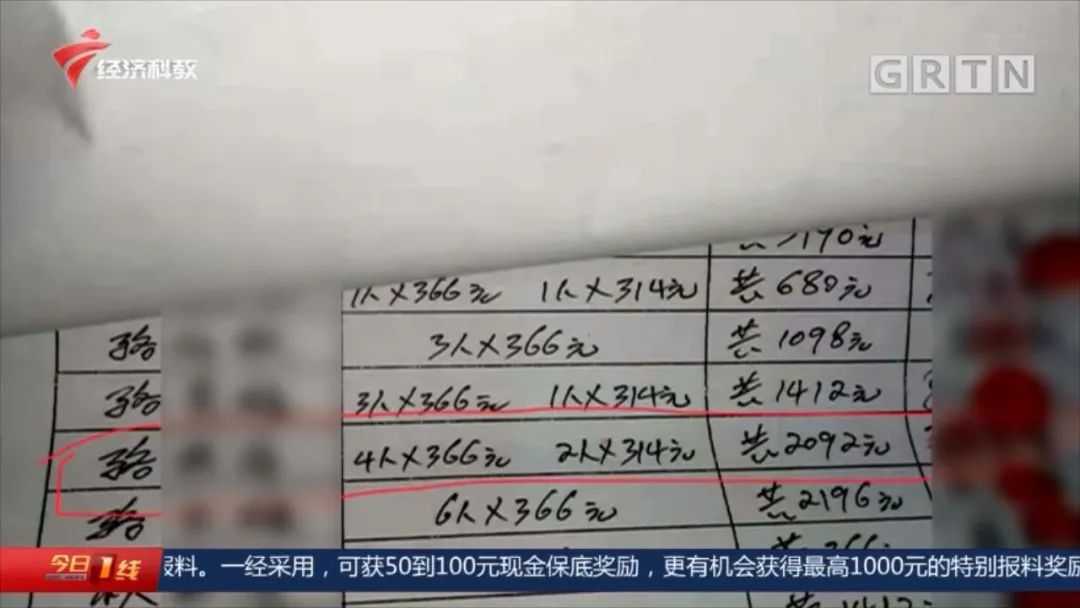 经济科教
GRTN
1人×366元 1人×314元 共680元
骆 3人×366元 共1098元
骆 3人×366元 1人×314元 共1412元
骆 4人×366元 2人×314元 共2092元
骆 6人×366元 共2196元
今日1线 报料。一经采用，可获50到100元现金保底奖励，更有机会获得最高1000元的特别报料奖励